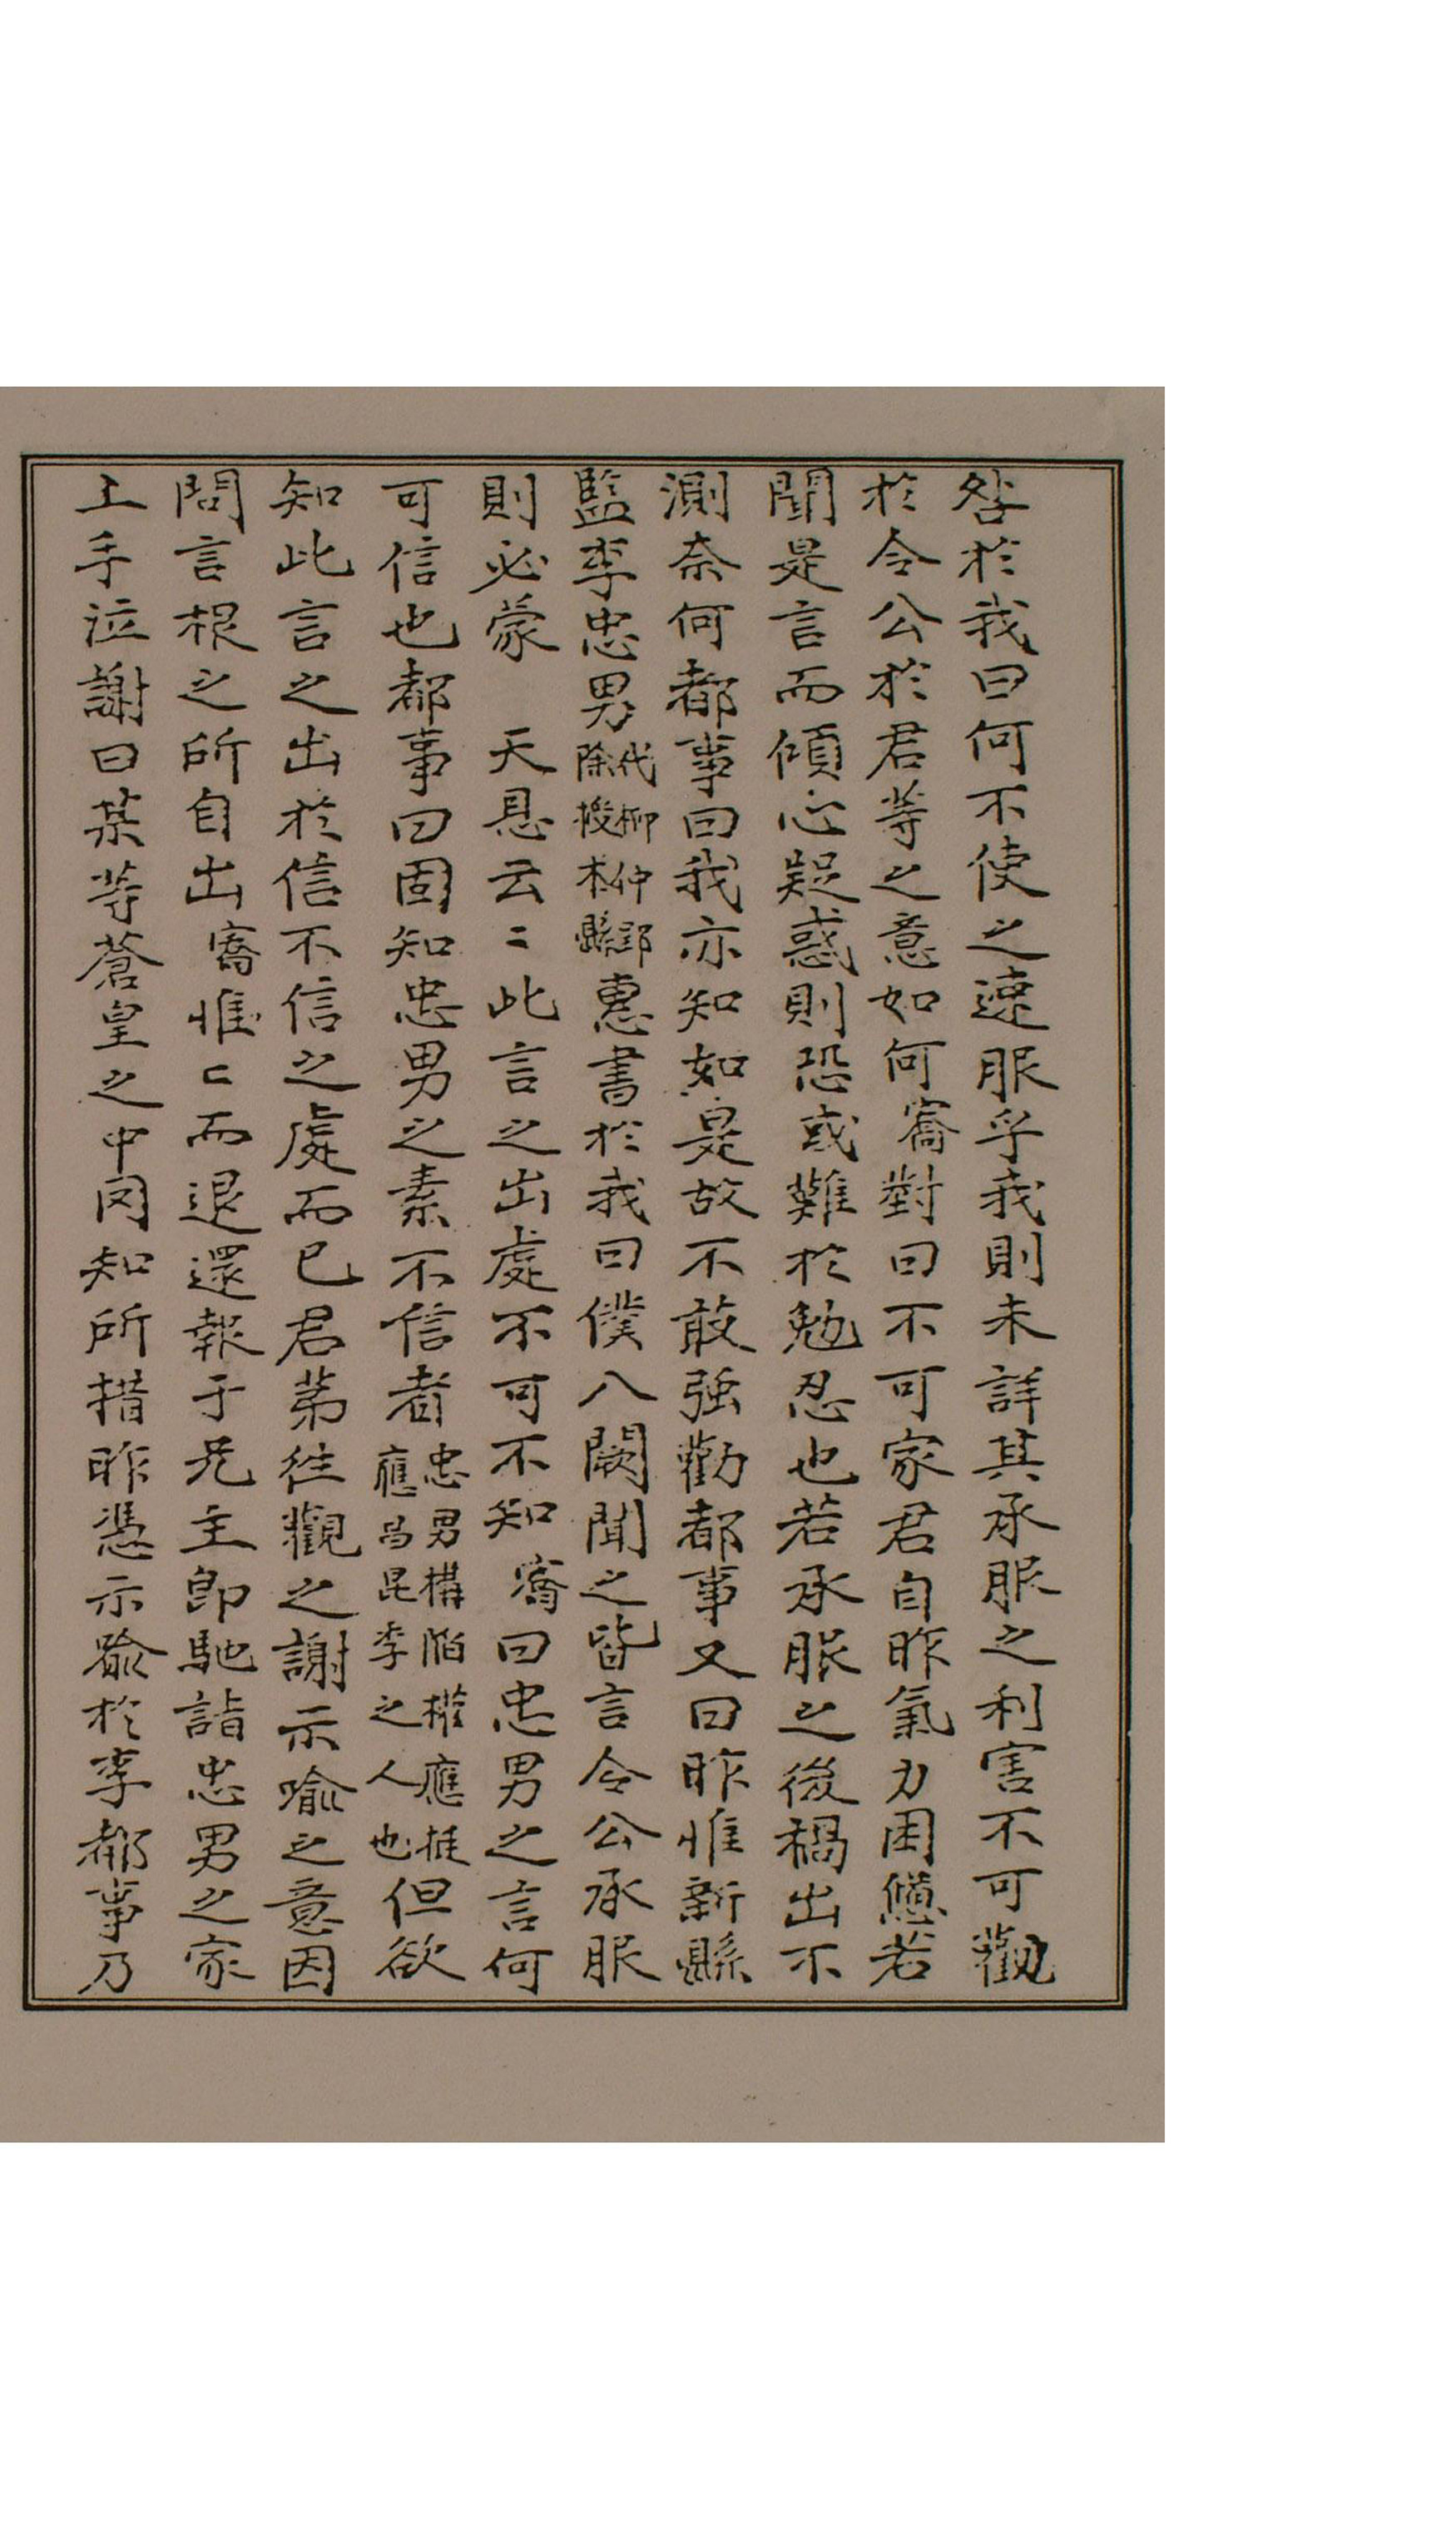 咎於我曰何不使之速服乎我則未詳其承服之利害不可勸
於令公於君等之意如何窩對曰不可家君自昨氣力困憊若
聞是言而傾心疑惑則恐或難於勉忍也若承服之後禍出不
測奈何都事曰我亦知如是故不敢強勸都事又曰昨惟新縣
監李忠男代柳仲郢除授本縣惠書於我曰僕入闕聞之皆言令公承服
則必蒙　天恩云〻此言之出處不可不知窩曰忠男之言何
可信也都事曰固知忠男之素不信者忠男構陷權應挺應昌昆季之人也但欲
知此言之出於信不信之處而已君第往觀之謝示喻之意因
問言根之所自出窩惟〻而退還報于兄主即馳詣忠男之家
上手泣謝曰某等蒼皇之中罔知所措昨憑示喩於李都事乃